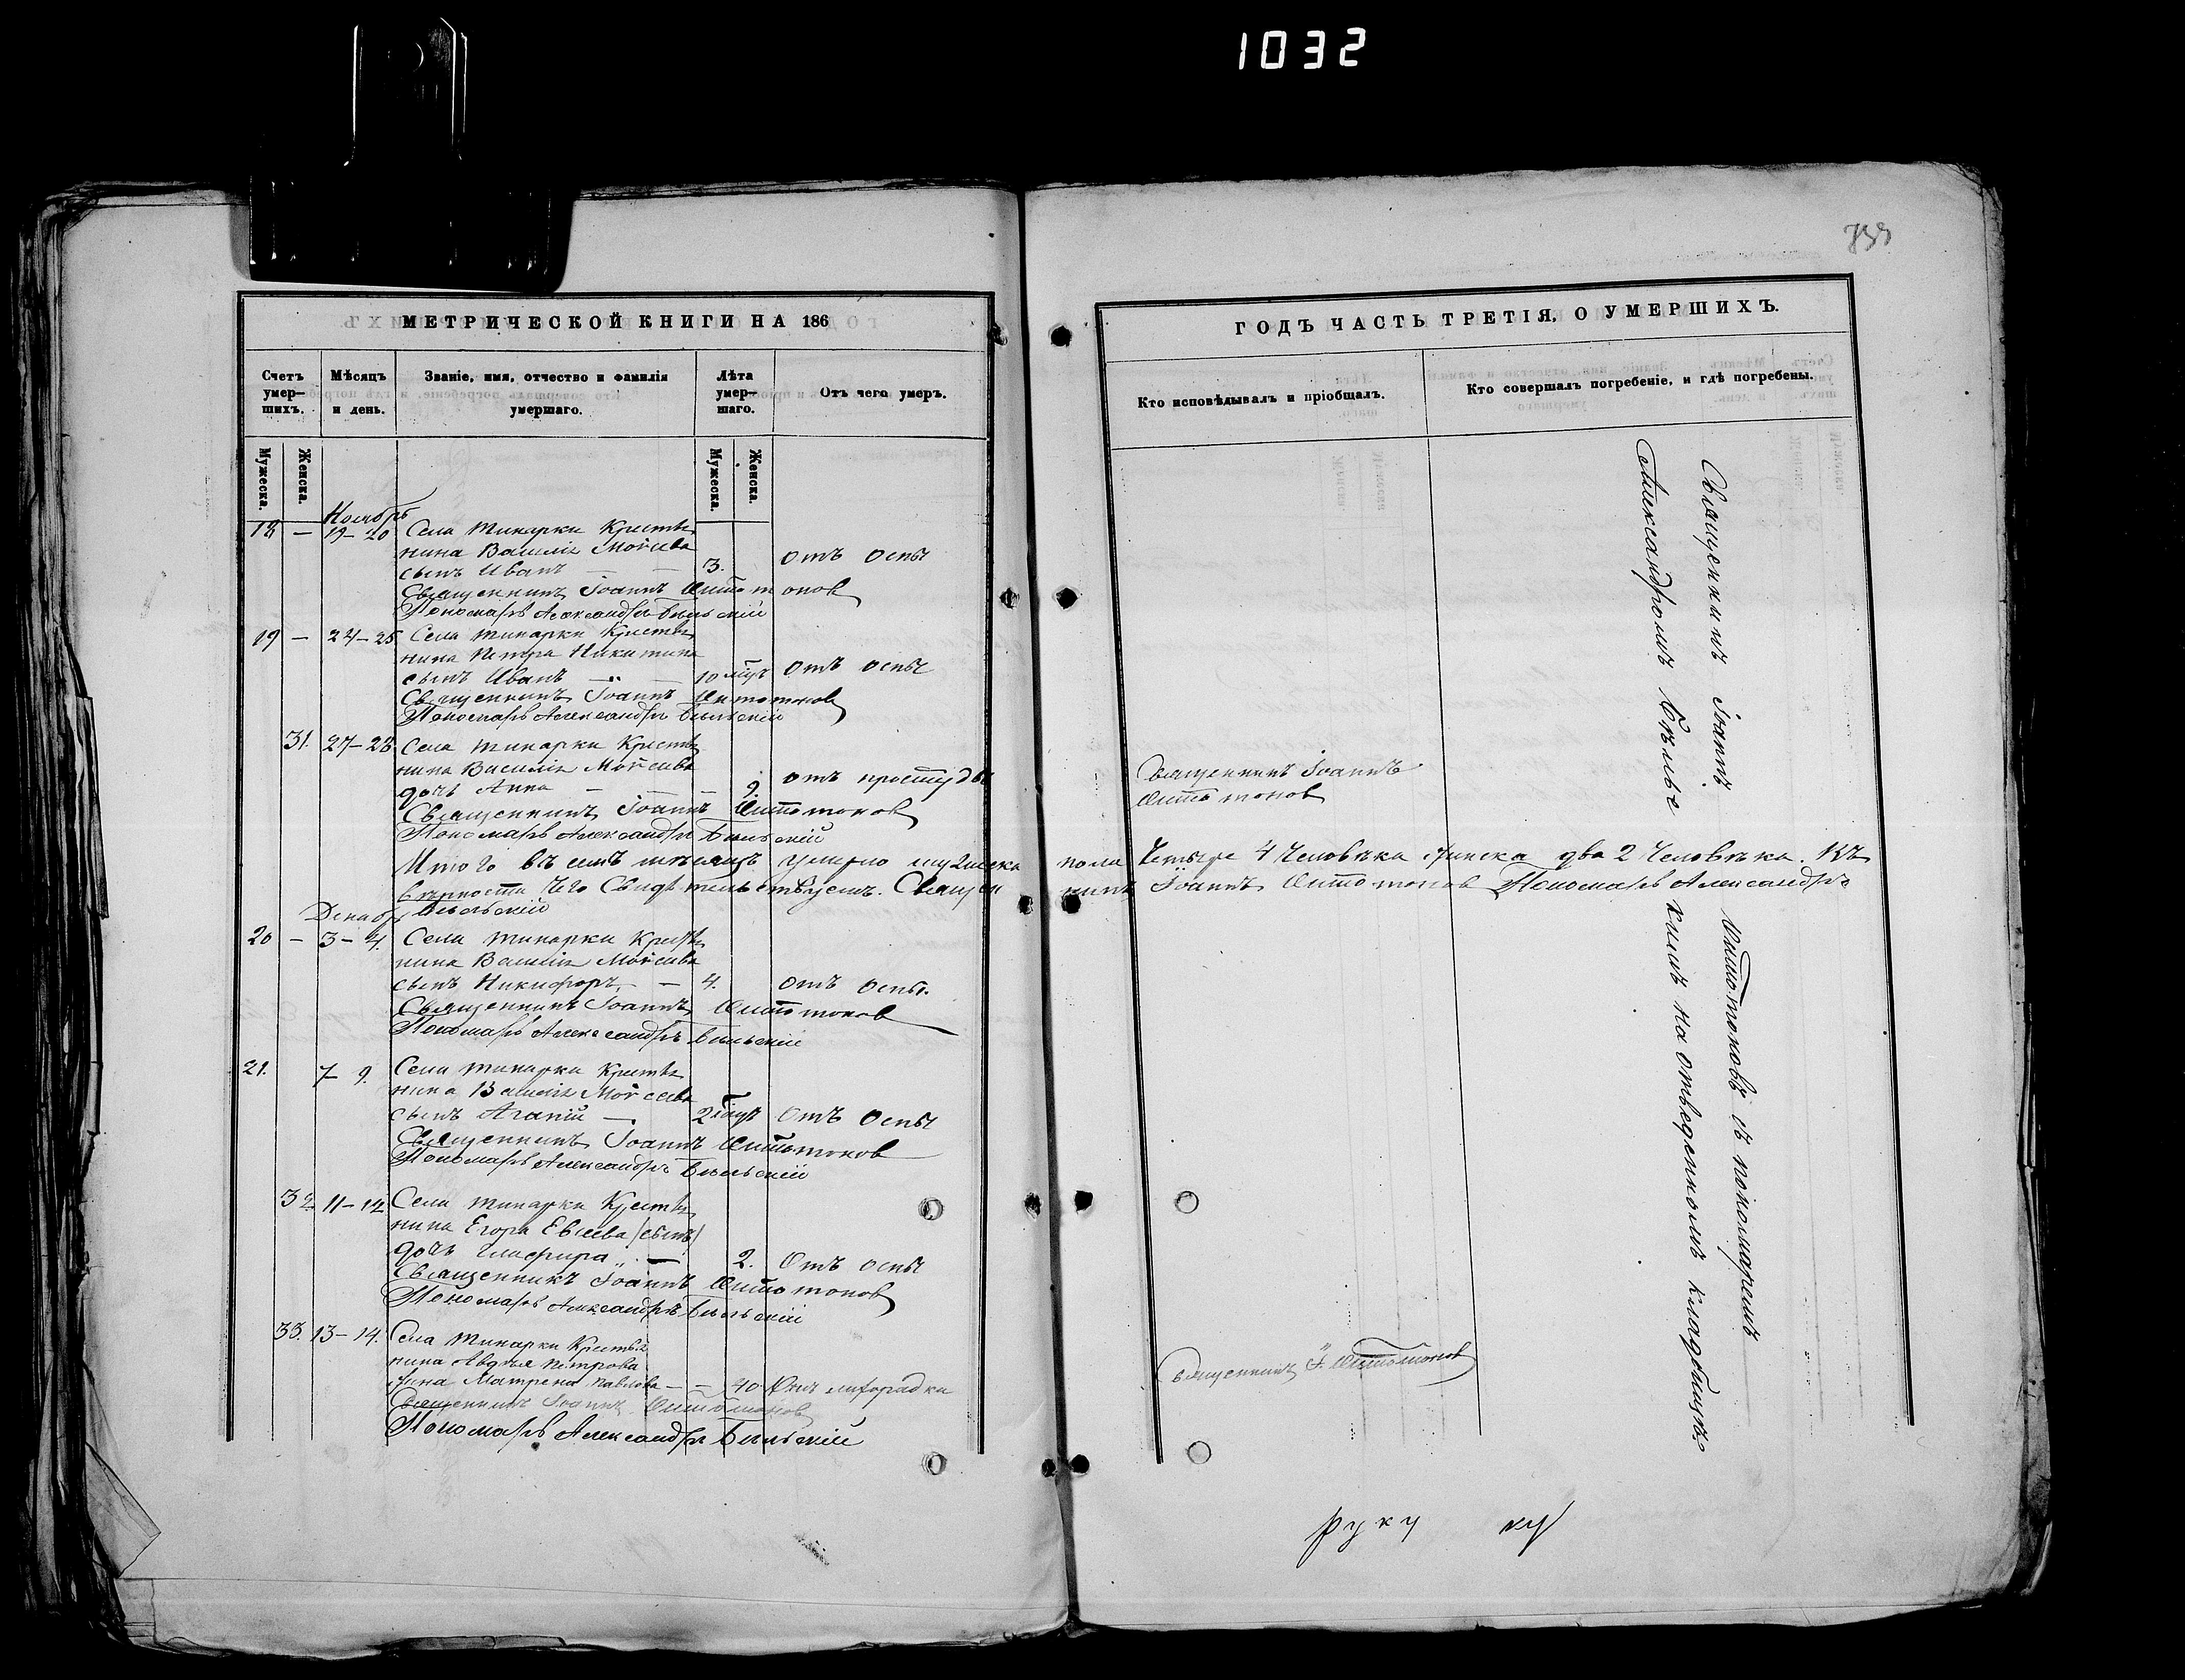 1032
739
МЕТРИЧЕСКОЙ КНИГИ НА 186
Счетъ умер-шихъ.
Мѣсяцъ и день.
Званіе, имя, отчество и фамилія умершаго.
Лѣта умер-шаго.
Отъ чего умеръ.
Мужеска.
Женска.
Мужеска.
Женска.
Ноябрь
18 — 19-20 Села Тинарки Крестья
нина Василія Моисѣева
сынъ Иванъ — — 3. отъ оспы
Священникъ Іоаннъ
Пономарь Александръ Бѣльскій
19 — 24-25 Села Тинарки Крестья
нина Петра Никитина
сынъ Иванъ — 10 мцъ отъ оспы
Священникъ Іоаннъ
Пономарь Александръ Бѣльскій
31. 27-28 Села Тинарки Крестья
нина Василія Моисѣева
дочь Анна — 9. отъ простуды
Священникъ Іоаннъ
Пономарь Александръ Бѣльскій
Итого въ семъ мѣсяцѣ умерло мужеска
вѣрности чего свидѣтельствуемъ. Священ
Декабрь Бѣльскій
20 — 3-4. Села Тинарки Крестья
нина Василія Моисѣева
сынъ Никифоръ, — 4. отъ оспы.
Священникъ Іоаннъ
Пономарь Александръ Бѣльскій
21. 7-9. Села Тинарки Крестья
нина Василія Моисѣева
сынъ — 2 отъ оспы
Священникъ Іоаннъ
Пономарь Александръ Бѣльскій
32 11-12 Села Тинарки Крестья
нина Егора Евсеева (сынъ)
дочь Глафира „ — 2. Отъ оспы
Священникъ Іоаннъ
Пономарь Александръ Бѣльскій
33. 13-14. Села Тинарки Крестья
нина Авдея Петрова
жена Матрена Павлова — — 40 Отъ лихорадки
Священникъ Іоаннъ
Пономарь Александръ Бѣльскій
ГОДЪ ЧАСТЬ ТРЕТІЯ, О УМЕРШИХЪ.
Кто исповѣдывалъ и пріобщалъ.
Кто совершалъ погребеніе, и гдѣ погребены.
Священникъ Іоаннъ
пола четыре 4 человѣка женска два 2 человѣка. Въ
никъ Іоаннъ Пономарь Александръ
Священникъ І.
Священникомъ Іоанномъ съ пономаремъ
Александромъ Бѣльскимъ на отведенномъ кладбищѣ
руку ку